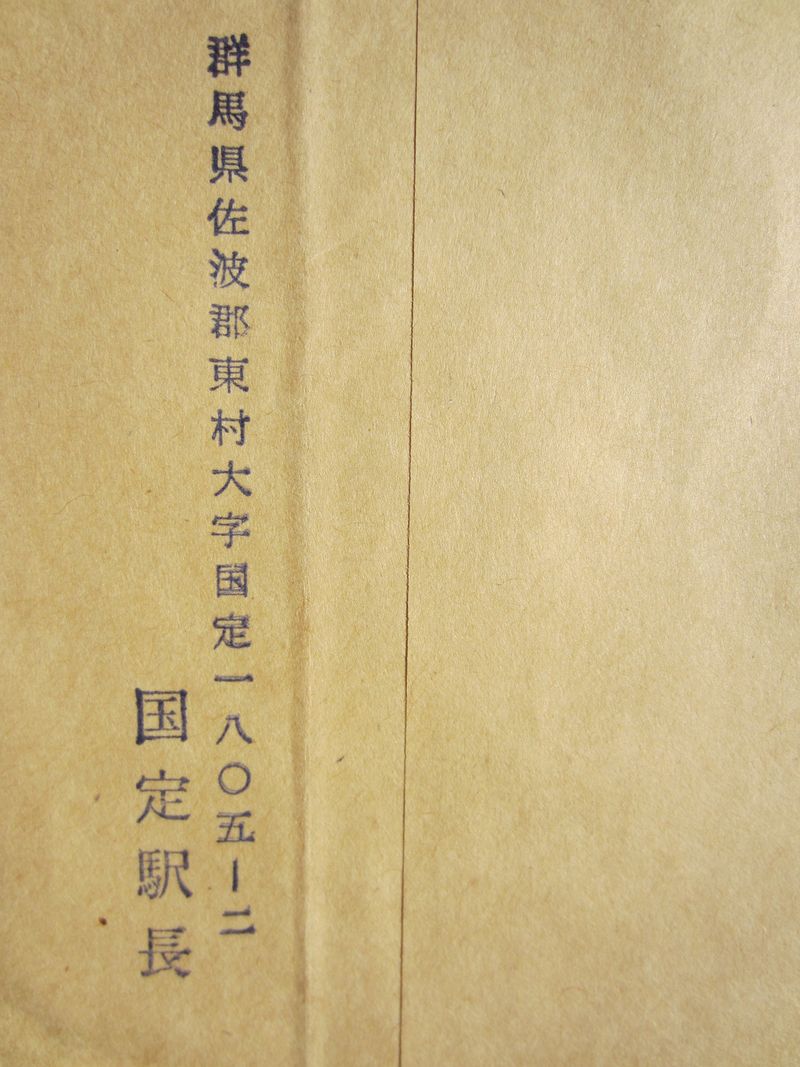 群馬県佐波郡東村大字国定一八〇五ー二
国定駅長